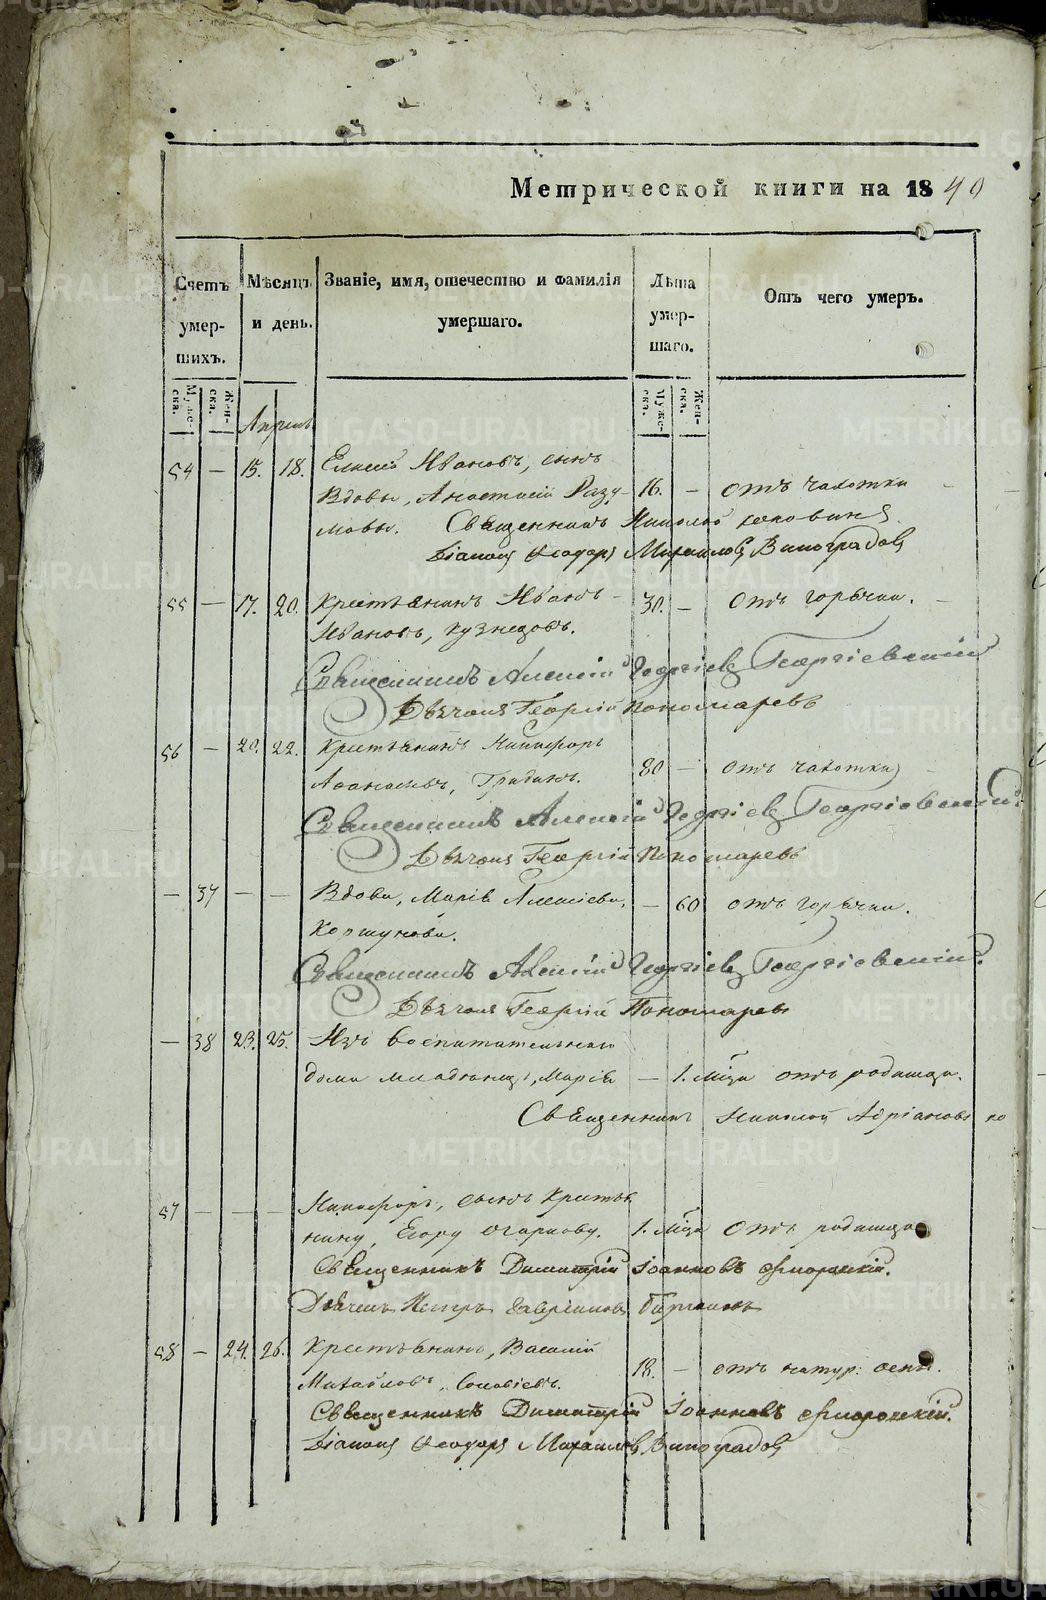 Метрической книги на 1840
Счетъ умер-шихъ.
Мѣсяцъ и день.
Званіе, имя, отечество и фамилія умершаго.
Лѣта умер-шаго.
Отъ чего умеръ.
Муже-ска. Жен-ска.
Муже-ска. Жен-ска.
Апрель
54 — 15. 18. Елисей Ивановъ, сынъ
Вдовы, Анастасіи Разу- 16. — отъ чахотки
мовы. Священникъ Николай
Діаконъ Ѳеодоръ Михаиловъ Виноградовъ
55 — 17. 20. Крестьянинъ Иванъ 30. — отъ горячки.
Ивановъ, Кузнецовъ.
Священникъ Алексій Георгіевъ Георгіевскій
Дьячокъ Георгій Пономаревъ
56 — 20. 22. Крестьянинъ Никифоръ
Аѳанасьевъ, Гридинъ. 80 — отъ чахотки
Священникъ Алексій Георгіевъ Георгіевскій.
Дьячокъ Георгій Пономаревъ
— 37 — — Вдова, Марія Алексіева, — 60 отъ горячки.
Коршунова.
Священникъ Алексій Георгіевъ Георгіевскій.
Дьячокъ Георгій Пономаревъ
— 38 23. 25. Изъ Воспитательнаго
дома младенецъ, Марія — 1. Мѣца отъ родимца.
Священникъ Николай Адріановъ
57 — — — Никифоръ, сынъ Крестья
нину, Егору Огаркову. 1. Мѣца отъ родимца
Священникъ Димитрій Іоанновъ Флоровскій.
Дьячекъ Петръ Гавріиловъ
58 — 24. 26. Крестьянинъ, Василій
Михайловъ, Соловіевъ. 18. — отъ натур: оспы.
Священникъ Димитрій Іоанновъ Флоровскій.
Діаконъ Ѳеодоръ Михаиловъ Виноградовъ
METRIKI.GASO-URAL.RU